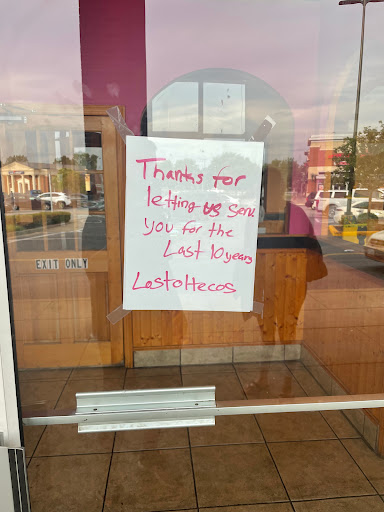 Thanks for
letting us serv
you for the
Last 10 years
Lostoltecos
EXIT ONLY